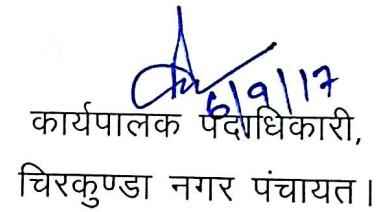 6/9/17
कार्यपालक पदाधिकारी,
चिरकुण्डा नगर पंचायत।